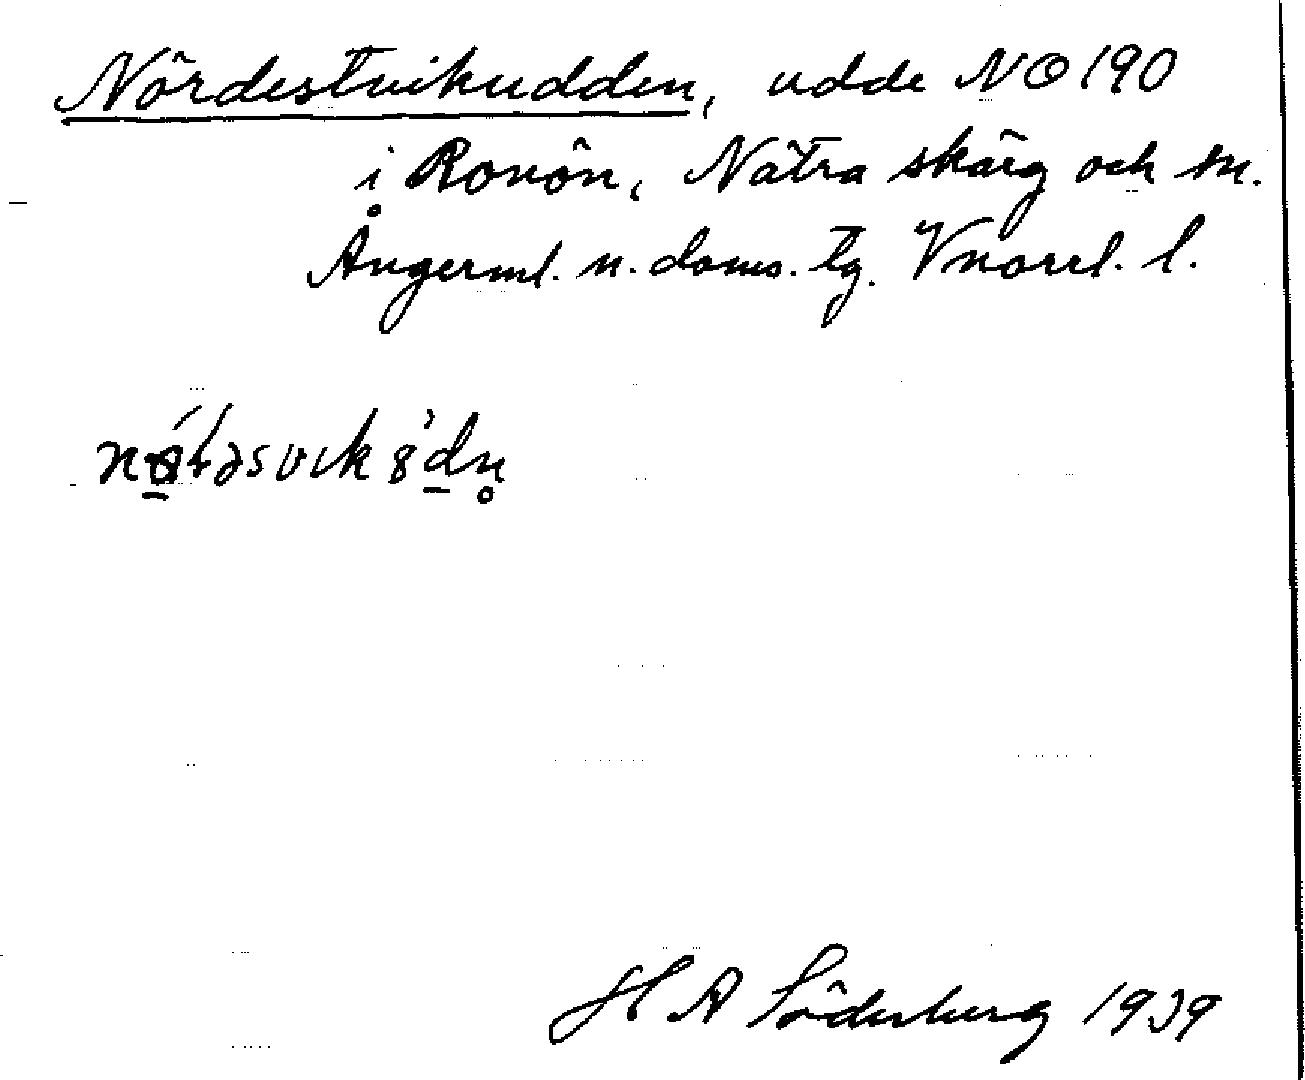 Nördestvikudden, udde NO 190
i Ronön, Nätra skärg och sn.
Ångerml. n. doms. tg. Vnorrl. l.
H A Söderberg 1939